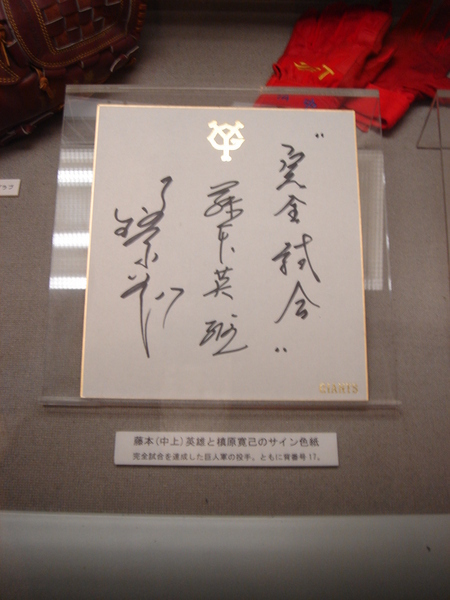 "完全試合"
藤本英雄
GIANTS
藤本(中上)英雄と槙原寛己のサイン色紙
完全試合を達成した巨人軍の投手。ともに背番号17。